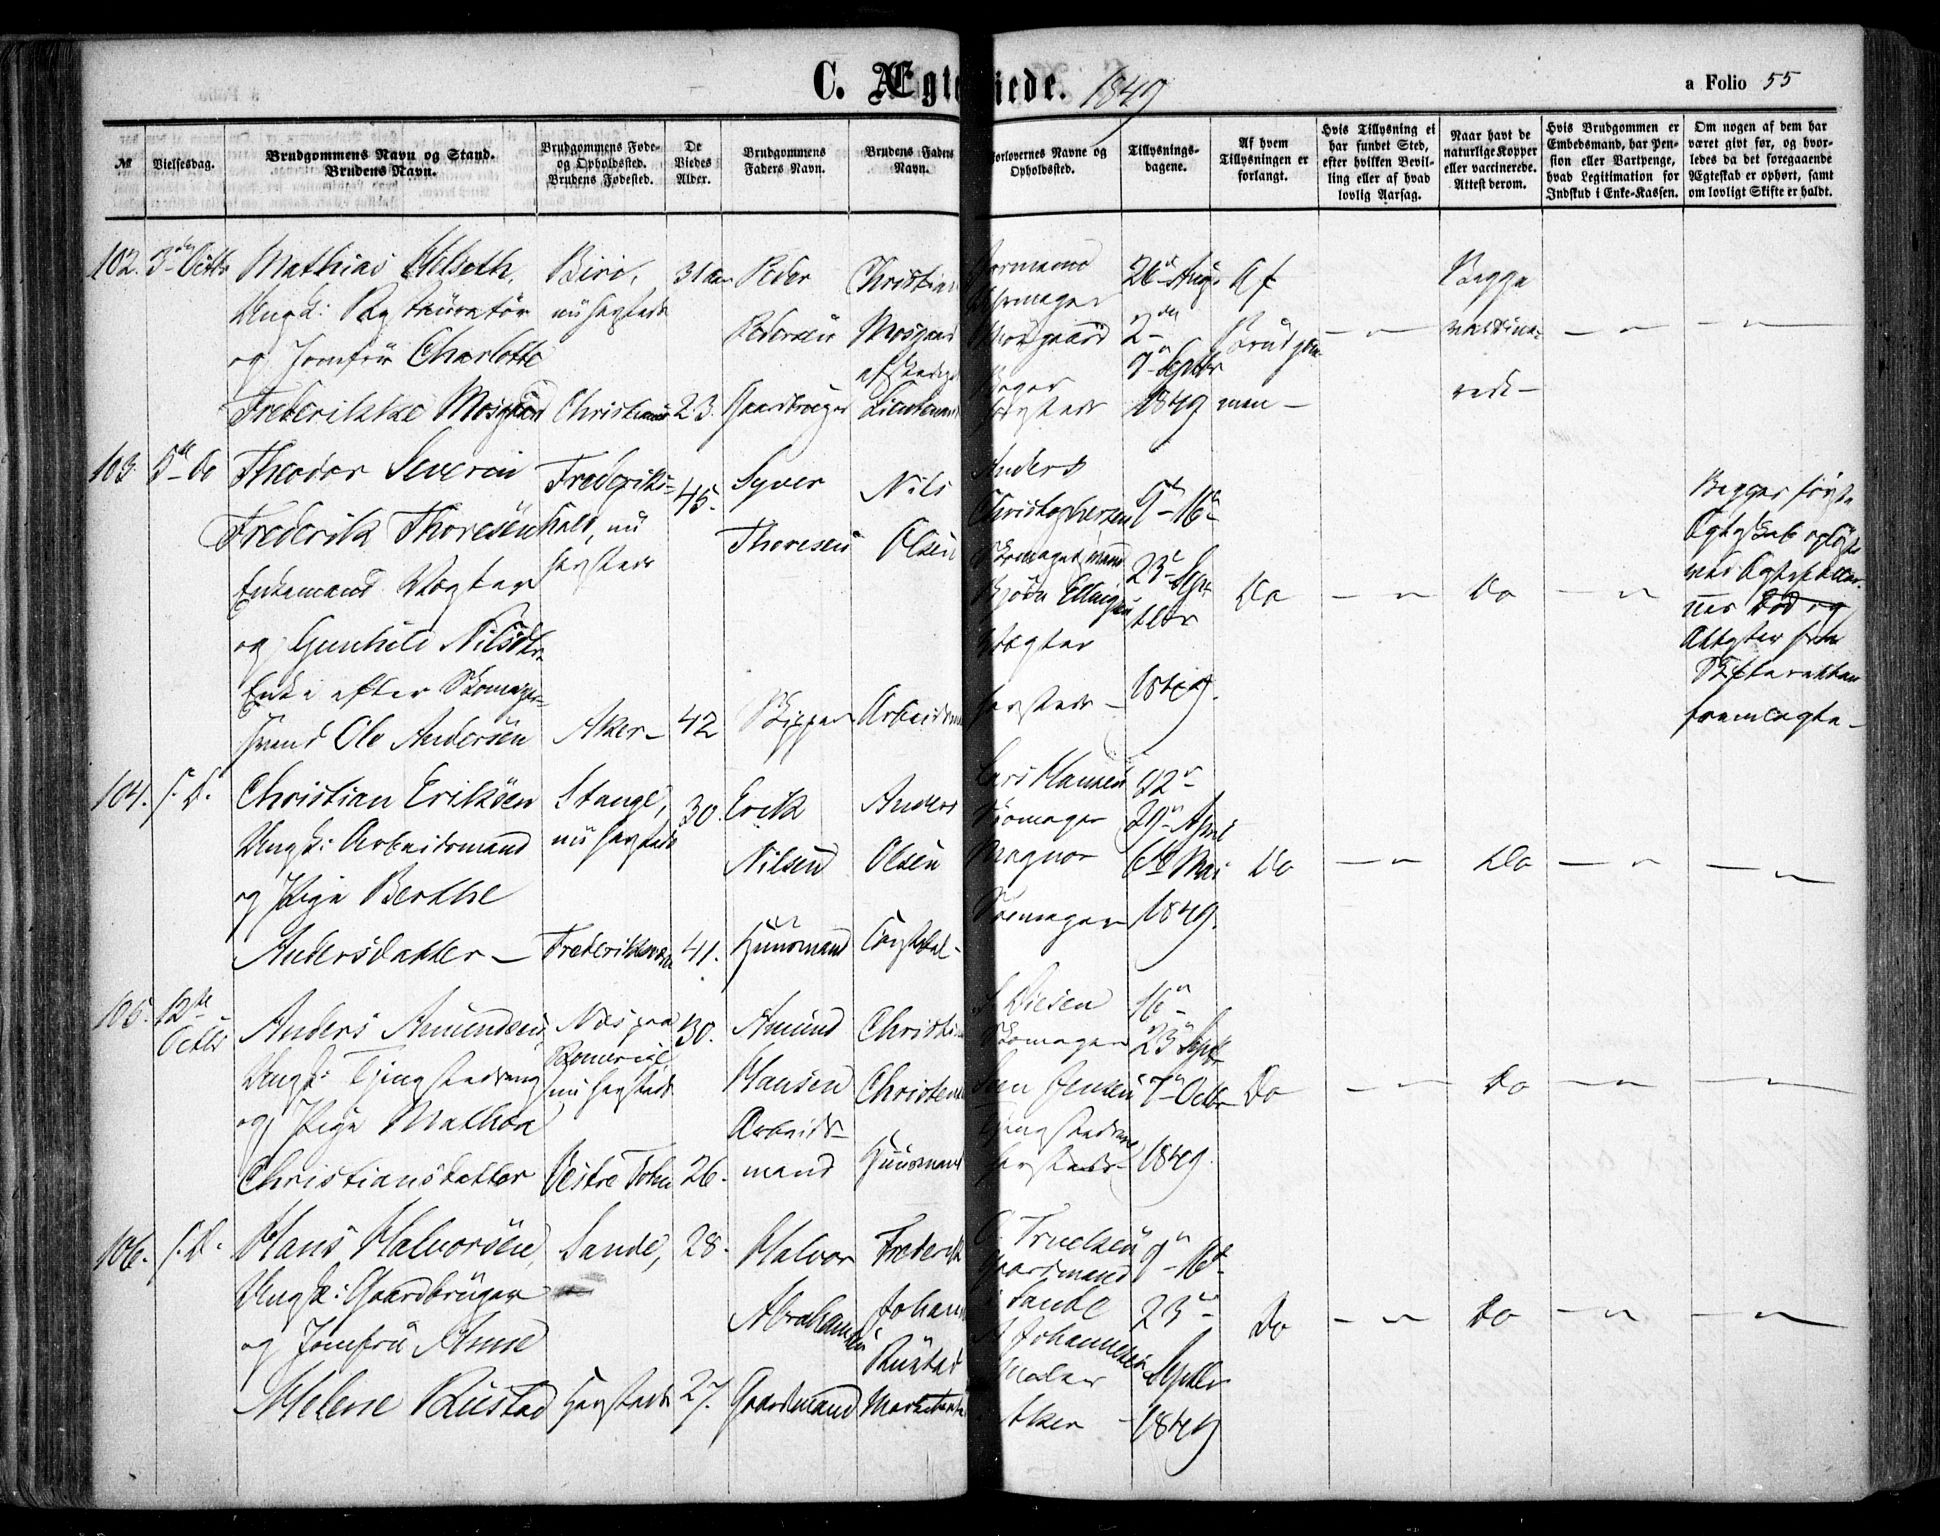 C. Ægteviede. 1849
a Folio 55
№
Vielsesdag.
Brudgommens Navn og Stand.
Brudens Navn.
Brudgommens Føde-
og Opholdssted.
Brudens Fødested.
De
Viedes
Alder.
Brudgommens
Faders Navn.
Brudens Faders
Navn.
Forlovernes Navne og
Opholdssted.
Tillysnings-
dagene.
Af hvem
Tillysningen er
forlangt.
Hvis Tillysning ei
har fundet Sted,
efter hvilken Bevil-
ling eller af hvad
lovlig Aarsag.
Naar havt de
naturlige Kopper
eller vaccinerede.
Attest derom.
Hvis Brudgommen er
Embedsmand, har Pen-
sion eller Vartpenge,
hvad Legitimation for
Indskud i Enke-Kassen.
Om nogen af dem har
været gift før, og hvor-
ledes da det foregaaende
Ægteskab er ophørt, samt
om lovligt Skifte er holdt.
102.
3die Octbr
Mathias Helseth,
Ungk: Restauratør
og Jomfru Charlotte
Frederikke Mosgaard
Biri,
nu hersteds
Christiania
31 Aar
23.
Peder
Pedersen
Gaardbruger
Christian
Mosgaard
Lieutenant
26de Aug:
2den
9de Septbr
1849
Af
Brudgom-
men -
Begge
vaccine-
rede -
103.
5te Do
Theodor Severin
Frederik Thoresen
Enkemand Vægter
og Gunhild Nilsdtr
Enke efter Skomager-
svend Ole Andersen
Frederiks-
hald, nu
hersteds
Aker -
45.
42
Syver
Thoresen
Skipper
Nils
Olsen
Arbeidsmand
Anders
Christophersen
Bjørn Ellingsen
Vægter
hersteds -
9de 16de
23de Sep-
tbr
1849.
Do
Do
Begges første
Ægteskab opløst
ved Ægtefæller-
nes Død og
Attester fra
Skifteretten
fremlagte -
104.
s. D.
Christian Eriksen
Ungk: Arbeidsmand
og Pige Berthe
Andersdatter -
Stange,
nu hersteds
30.
41.
Erik
Nilsen
Huusmand
Anders
Olsen
Lars Hansen
Skomager
Magnor
Skomager
22de
29de April
6te Mai
1849.
Do
Do
105.
12te
Octbr
Anders Amundsen,
Ungk: Tjenestedreng
og Pige Mathea
Christiansdatter
Næs paa
Romerige
nu hersteds
Vestre Toten
30.
26.
Amund
Hansen
Arbeids-
mand
Christian
Christensen
Huusmand
Skomager
Jensen
hersteds -
16de
23de Septbr
7de Octbr
1849.
Do
Do
106.
s. D.
Hans Halvorsen,
Ungk: Gaardbruger
og Jomfru Anne
Helene Rustad
Sande,
hersteds
28.
27.
Halvor
Abrahamsen
Gaardmand
Frederik
Johan
Rustad
Truelsen
Gaardmand
Sande
Johannesen
Aker
9de 16de
23de
Septbr
1849
Do
Do